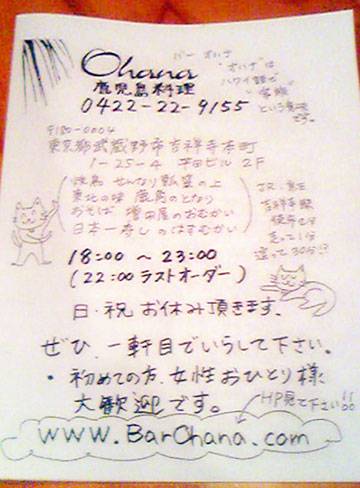 Ohana
鹿児島料理
0422-22-9155
バー オハナ
"オハナ"は
ハワイ語で
"家族"
という意味
です。
〒180-0004
東京都武蔵野市吉祥寺本町
1-25-4 平田ビル 2F
焼鳥 せんなり瓢箪の上
東北の味 鹿角のとなり
おそば 増田屋のおむかい
日本一寿しのはすむかい
JR・京王
吉祥寺駅
徒歩2分
走って1分
這って30分!?
18:00 ～ 23:00
(22:00 ラストオーダー)
日・祝 お休み頂きます。
ぜひ、一軒目でいらして下さい。
・初めての方、女性おひとり様
大歓迎です。
HP見て下さい!!
www.BarOhana.com